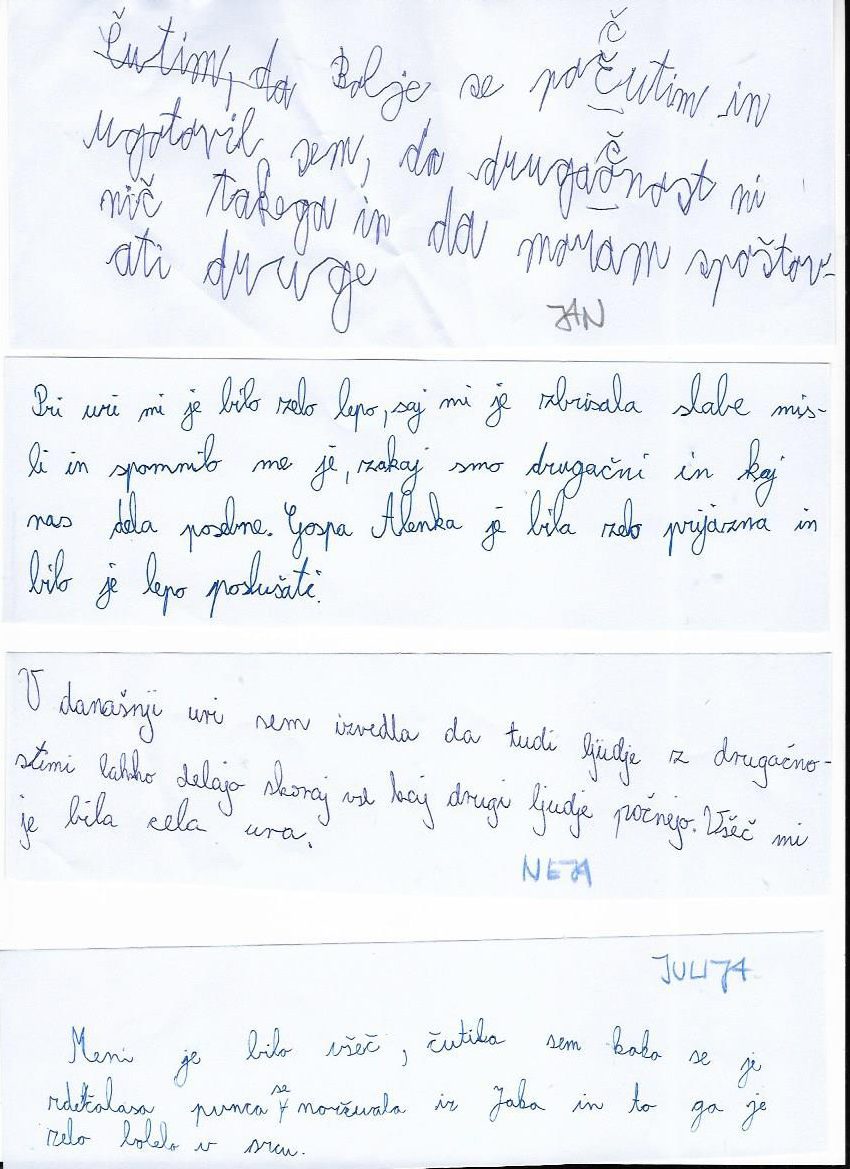 Čutim, da Bolje se počutim in
ugotovil sem, da drugačnost ni
nič takega in da moram spoštov-
ati druge
JAN
Pri uri mi je bilo zelo lepo, saj mi je zbrisala slabe mis-
li in spomnilo me je, zakaj smo drugačni in kaj
nas dela posebne. Gospa Alenka je bila zelo prijazna in
bilo je lepo poslušati.
V današnji uri sem izvedla da tudi ljudje z drugačno-
stimi lahko delajo skoraj vse kaj drugi ljudje počnejo. Všeč mi
je bila cela ura.
NEJA
JULIJA
Meni je bilo všeč, čutila sem kako se je
rdečalasa punca se norčevala iz Jaka in to ga je
zelo bolelo v srcu.